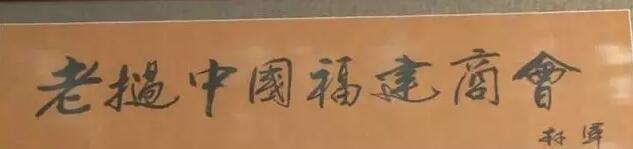 老撾中國福建商會